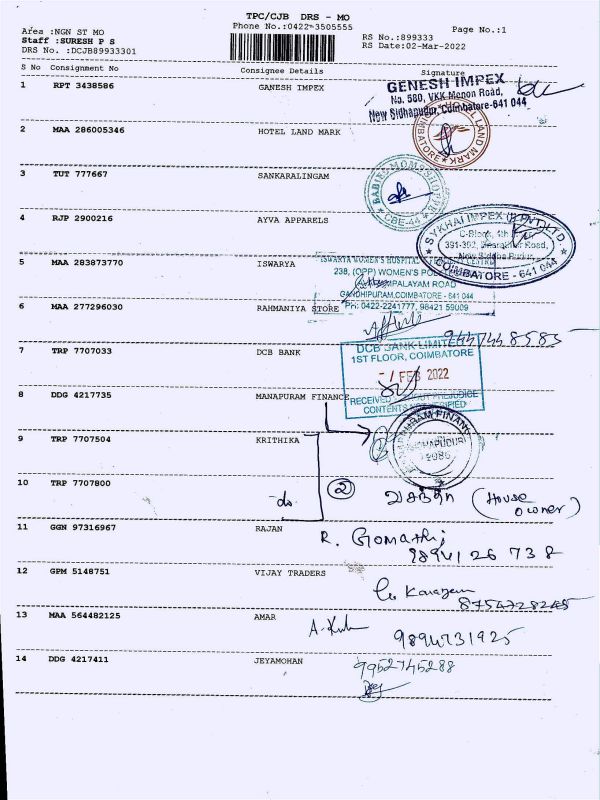 TPC/CJB DRS - MO
Area :NGN ST MO
Phone No.:0422-3505555
Page No.:1
Staff :SURESH P S
RS No.:899333
DRS No. :DCJB89933301
RS Date:02-Mar-2022
S No Consignment No Consignee Details Signature
1 RPT 3438586 GANESH IMPEX
GENESH IMPEX
No. 580, VKK Menon Road,
New Sidhapudur, Coimbatore-641 044
2 MAA 286005346 HOTEL LAND MARK
HOTEL LAND MARK
COIMBATORE
3 TUT 777667 SANKARALINGAM
CBE-44
4 RJP 2900216 AYVA APPARELS
SYKHAI IMPEX (P) LTD.
391-392, Road,
COIMBATORE - 641 044
5 MAA 283873770 ISWARYA
ISWARYA WOMEN'S HOSPITAL
238, (OPP) WOMEN'S
GANDHIPURAM, COIMBATORE - 641 044
PH: 0422-2241777, 98421 59009
6 MAA 277296030 RAHMANIYA STORE
9447448585
7 TRP 7707033 DCB BANK
DCB BANK LIMITED
1ST FLOOR, COIMBATORE
FEB 2022
RECEIVED WITHOUT PREJUDICE
CONTENTS NOT VERIFIED
8 DDG 4217735 MANAPURAM FINANCE
9 TRP 7707504 KRITHIKA
10 TRP 7707800 do
2
வசந்தா (House owner)
11 GGN 97316967 RAJAN
R. Gomathi
9894126738
12 GPM 5148751 VIJAY TRADERS
8754728245
13 MAA 564482125 AMAR
9894731925
14 DDG 4217411 JEYAMOHAN
9952745288